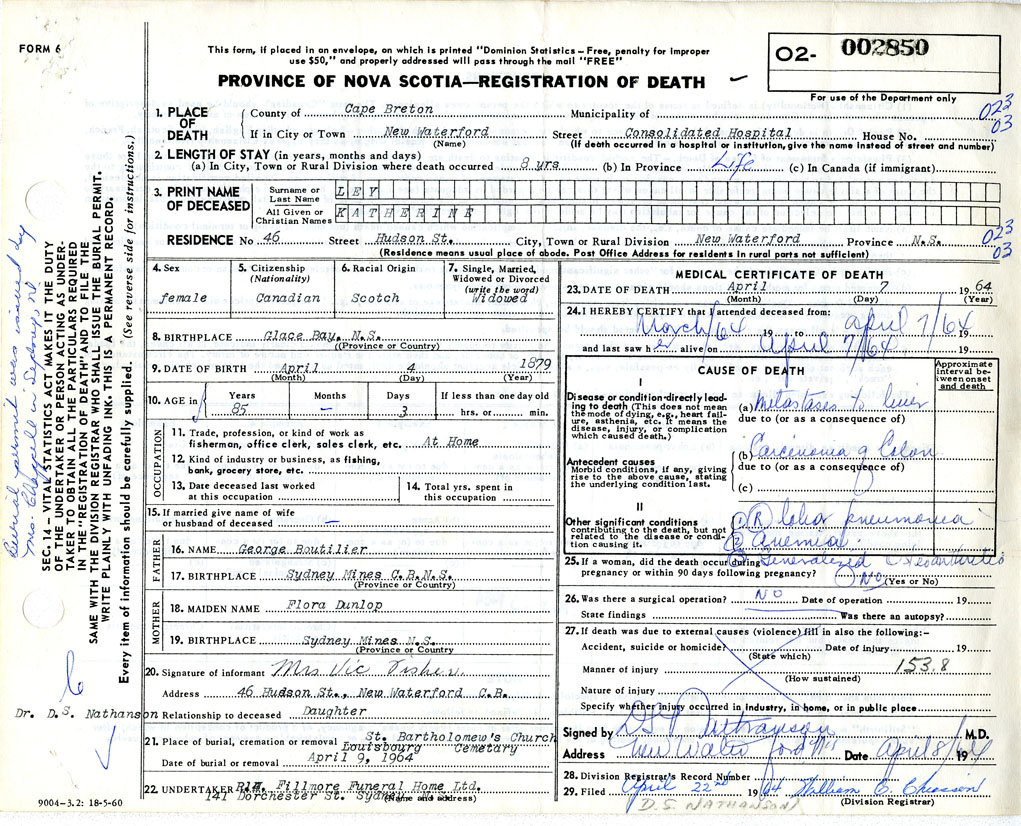 FORM 6
This form, if placed in an envelope, on which is printed "Dominion Statistics – Free, penalty for improper
use $50," and properly addressed will pass through the mail "FREE"
O2- 002850
PROVINCE OF NOVA SCOTIA—REGISTRATION OF DEATH
For use of the Department only
1. PLACE OF DEATH
County of Cape Breton Municipality of
023
03
If in City or Town New Waterford Street Consolidated Hospital House No.
(Name) (If death occurred in a hospital or institution, give the name instead of street and number)
2. LENGTH OF STAY (in years, months and days)
(a) In City, Town or Rural Division where death occurred 8 yrs (b) In Province Life (c) In Canada (if immigrant)
3. PRINT NAME OF DECEASED
Surname or Last Name LEY
All Given or Christian Names KATHERINE
RESIDENCE No 46 Street Hudson St. City, Town or Rural Division New Waterford Province N.S.
023
03
(Residence means usual place of abode. Post Office Address for residents in rural parts not sufficient)
4. Sex
female
5. Citizenship (Nationality)
Canadian
6. Racial Origin
Scotch
7. Single, Married, Widowed or Divorced (write the word)
Widowed
8. BIRTHPLACE Glace Bay, N.S.
(Province or Country)
9. DATE OF BIRTH April 4 1879
(Month) (Day) (Year)
10. AGE in
Years Months Days If less than one day old
85 – 3 hrs. or min.
OCCUPATION
11. Trade, profession, or kind of work as
fisherman, office clerk, sales clerk, etc. At Home
12. Kind of industry or business, as fishing,
bank, grocery store, etc.
13. Date deceased last worked
at this occupation
14. Total yrs. spent in
this occupation
15. If married give name of wife
or husband of deceased –
FATHER
16. NAME George Boutilier
17. BIRTHPLACE Sydney Mines C.B.N.S.
(Province or Country)
MOTHER
18. MAIDEN NAME Flora Dunlop
19. BIRTHPLACE Sydney Mines N.S.
(Province or Country
20. Signature of informant Mrs Vic Fisher
Address 46 Hudson St., New Waterford C.B.
Relationship to deceased Daughter
21. Place of burial, cremation or removal St. Bartholomew's Church
Louisbourg Cemetary
Date of burial or removal April 9, 1964
22. UNDERTAKER Fillmore Funeral Home Ltd.
141 Dorchester St.
(Name and address)
9004–3.2: 18-5-60
MEDICAL CERTIFICATE OF DEATH
23. DATE OF DEATH April 7 1964
(Month) (Day) (Year)
24. I HEREBY CERTIFY that I attended deceased from:
March/64 19 to April 7/64
and last saw her alive on April 7/64, 19
CAUSE OF DEATH
Approximate interval between onset and death
I
Disease or condition directly leading to death (This does not mean the mode of dying, e.g., heart failure, asthenia, etc. It means the disease, injury, or complication which caused death.)
(a) Metastases to liver
due to (or as a consequence of)
Antecedent causes
Morbid conditions, if any, giving rise to the above cause, stating the underlying condition last.
(b) Carcinoma of Colon
due to (or as a consequence of)
(c)
II
Other significant conditions
contributing to the death, but not related to the disease or condition causing it.
(1) (R) lobar pneumonia
(2) anemia
(3) Generalized Osteoarthritis
25. If a woman, did the death occur during
pregnancy or within 90 days following pregnancy? NO (Yes or No)
26. Was there a surgical operation? NO Date of operation 19
State findings Was there an autopsy?
27. If death was due to external causes (violence) fill in also the following:–
Accident, suicide or homicide? Date of injury 19
(State which)
Manner of injury 153.8
(How sustained)
Nature of injury
Specify whether injury occurred in Industry, in home, or in public place
Signed by DS Nathanson M.D.
Address New Waterford NS Date April 8/ 1964
28. Division Registrar's Record Number
29. Filed April 22nd 1964 William C. Chiasson
D.S. NATHANSON (Division Registrar)
Burial permit was issued by
Mrs. Chappelle in Sydney, NS
SEC. 14 – VITAL STATISTICS ACT MAKES IT THE DUTY
OF THE UNDERTAKER OR PERSON ACTING AS UNDER-
TAKER TO OBTAIN ALL THE PARTICULARS REQUIRED
IN THE "REGISTRATION OF DEATH" AND TO FILE THE
SAME WITH THE DIVISION REGISTRAR WHO SHALL ISSUE THE BURIAL PERMIT.
WRITE PLAINLY WITH UNFADING INK. THIS IS A PERMANENT RECORD.
Every item of information should be carefully supplied. (See reverse side for instructions.)
Dr. D.S. Nathanson